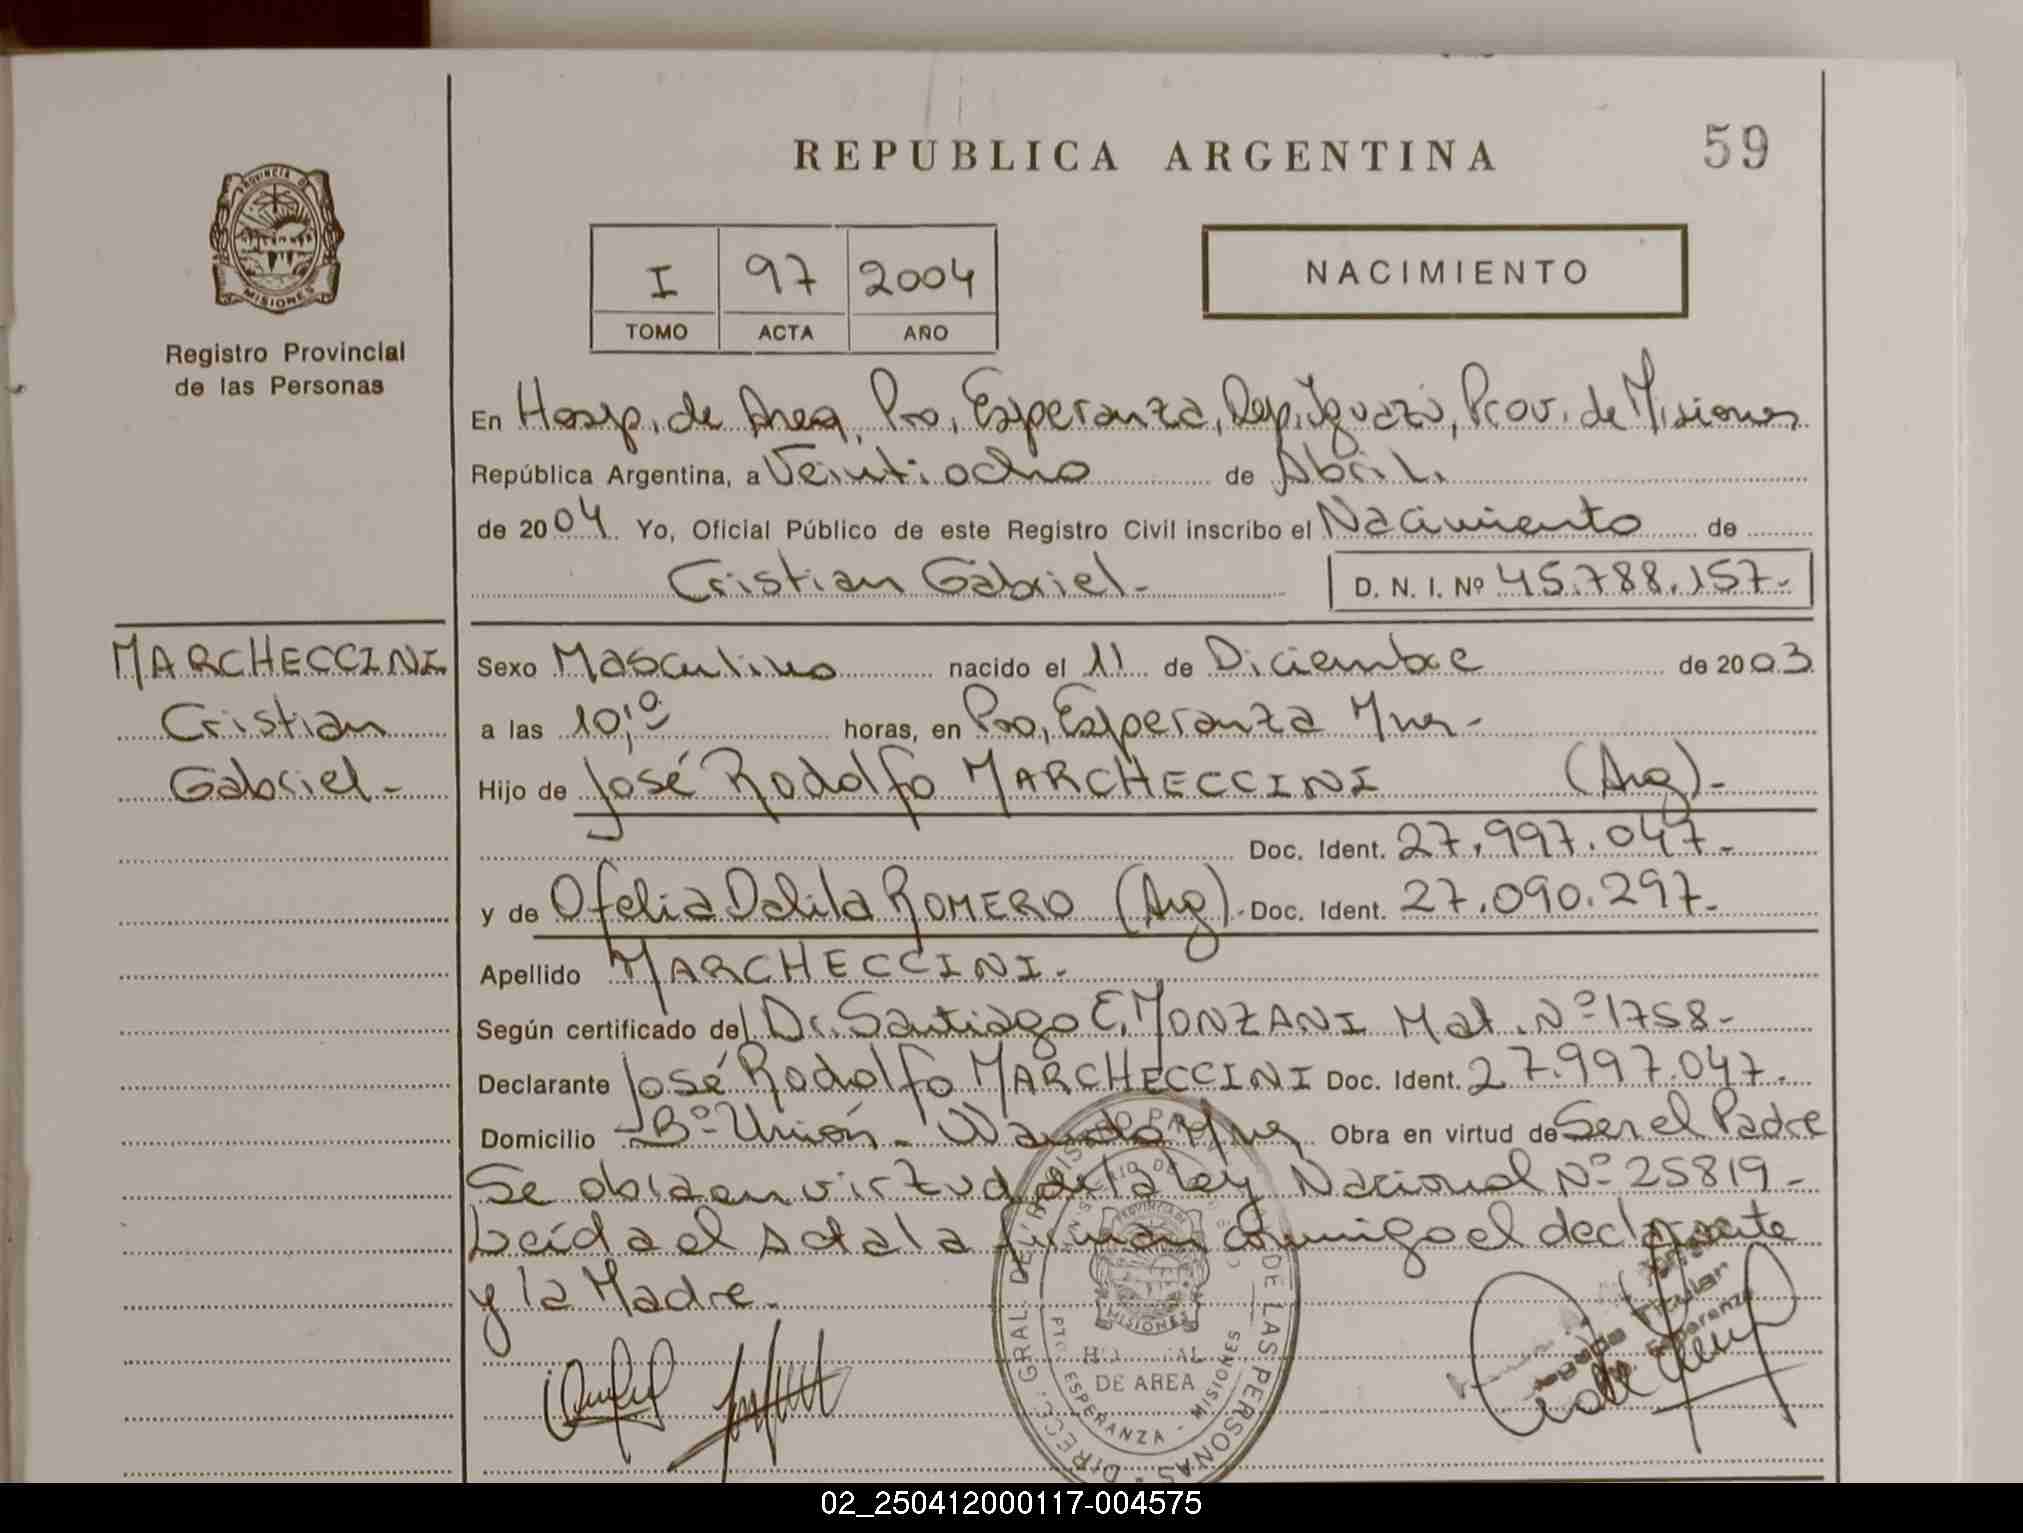 REPUBLICA ARGENTINA
59
PROVINCIA DE
MISIONES
Registro Provincial
de las Personas
I 97 2004
TOMO ACTA AÑO
NACIMIENTO
En Hosp. de Area, Pto, Esperanza, Dep. Iguazú, Prov. de Misiones
República Argentina, a Veintiocho de Abril.
de 2004. Yo, Oficial Público de este Registro Civil inscribo el Nacimiento de
Cristian Gabriel- D. N. I. Nº 45.788.157-
MARCHECCINI
Cristian
Gabriel-
Sexo Masculino nacido el 11 de Diciembre de 2003
a las 10,º horas, en Pto, Esperanza Mnes-
Hijo de José Rodolfo MARCHECCINI (Arg)-
Doc. Ident. 27.997.047-
y de Ofelia Dalila ROMERO (Arg)- Doc. Ident. 27.090.297-
Apellido MARCHECCINI-
Según certificado del Dr. Santiago E. MONZANI Mat. Nº 1758-
Declarante José Rodolfo MARCHECCINI Doc. Ident. 27.997.047-
Domicilio Bº Unión- Wanda Mnes Obra en virtud de Ser el Padre
Se obra en virtud de la ley Nacional Nº 25819-
Leída el acta la firman conmigo el declarante
y la Madre.
DIRECC. GRAL. DE LAS PERSONAS
PROVINCIA DE
MISIONES
DE AREA
PTO. ESPERANZA - MISIONES
Titular
Esperanza
02_250412000117-004575